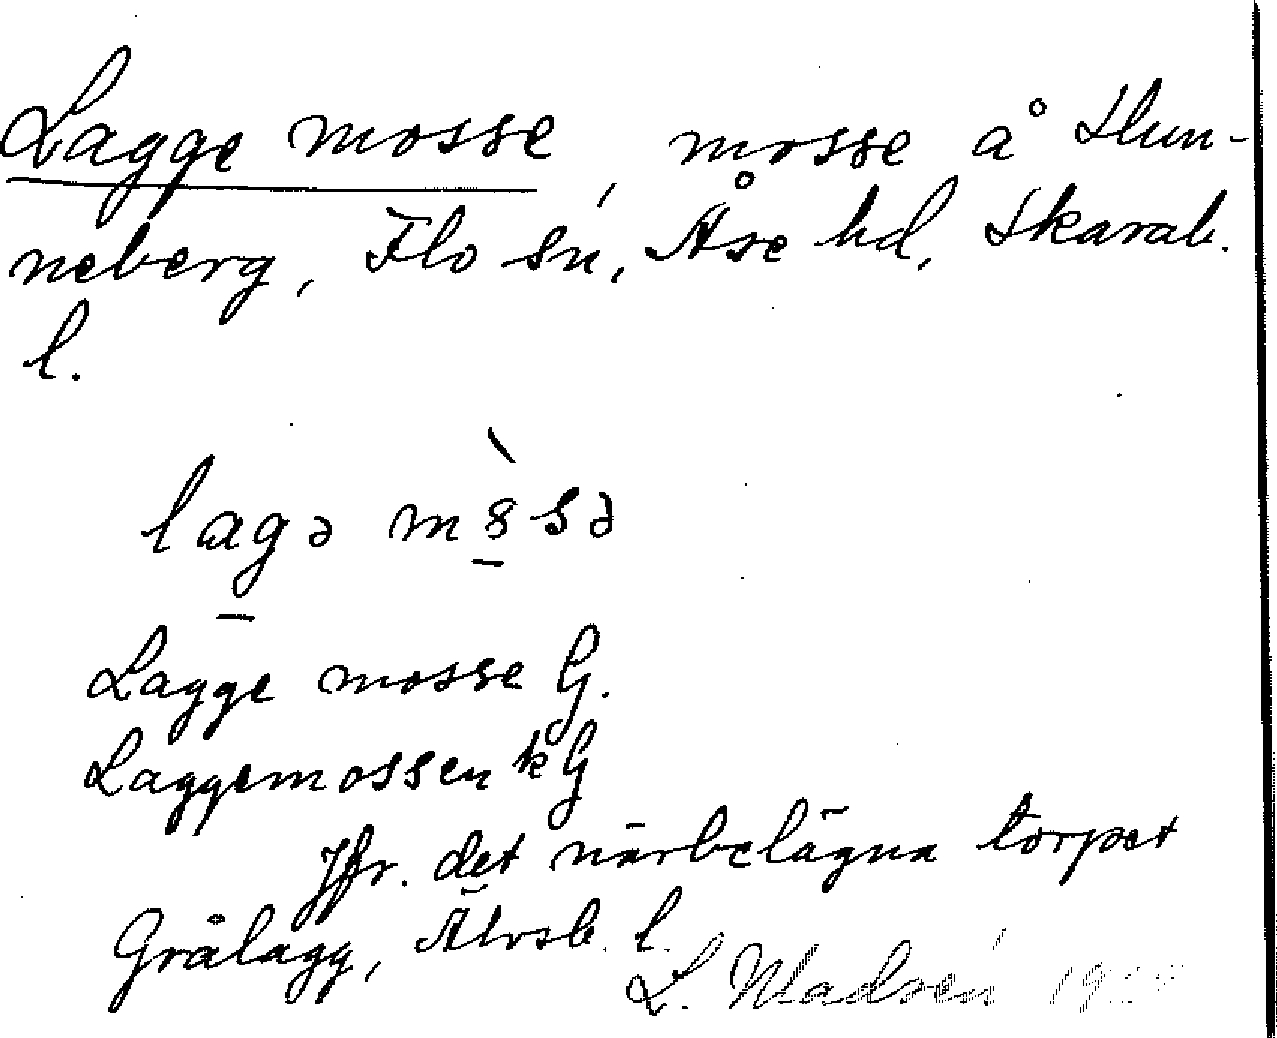 Lagge mosse, mosse å Hun-
neberg, Flo sn, Åse hd, Skarab.
l.
lagə m8sə
Lagge mosse G.
Laggemossen kG
Jfr. det närbelägna torpet
Grålagg, Älvsb. l.
L. Madsén